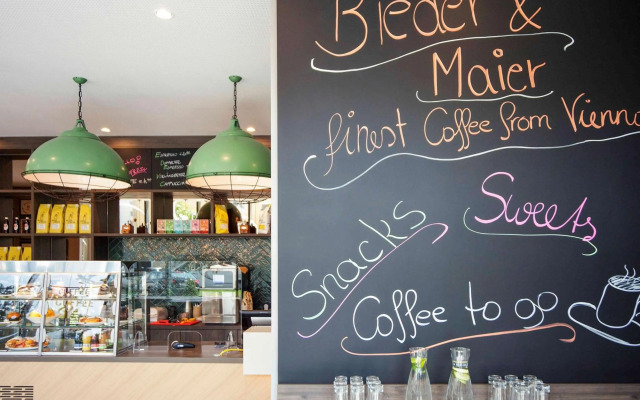 Bieder &
Maier
finest Coffee from Vienna
Sweets
Snacks
Coffee to go